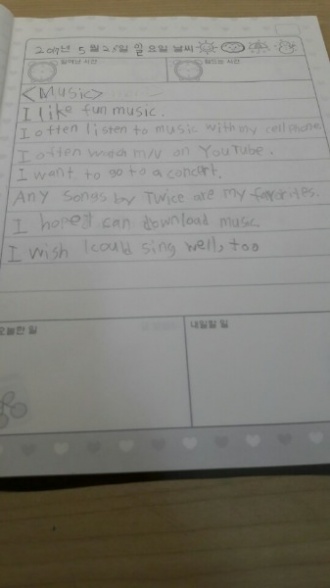 2017년 5월 2 일 일요일 날씨
일어난 시간 잠드는 시간
<Music>
I like fun music.
I often listen to music with my cellphone
I often mv on YouTube.
I want to go to a concert.
Any songs by Twice are my favorites.
I hope I can download music
I wish I could sing well, too
오늘한 일 내일할 일